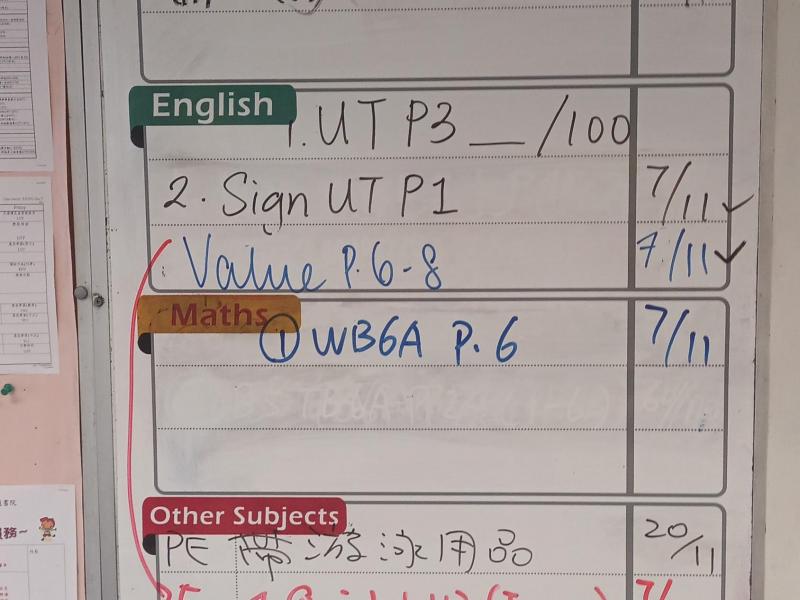 English
1. UT P3 __ /100
2. Sign UT P1 7/11 ✓
Value P.6-8 7/11 ✓
Maths
① WB6A P.6 7/11
Other Subjects
PE 帶游泳用品 20/11